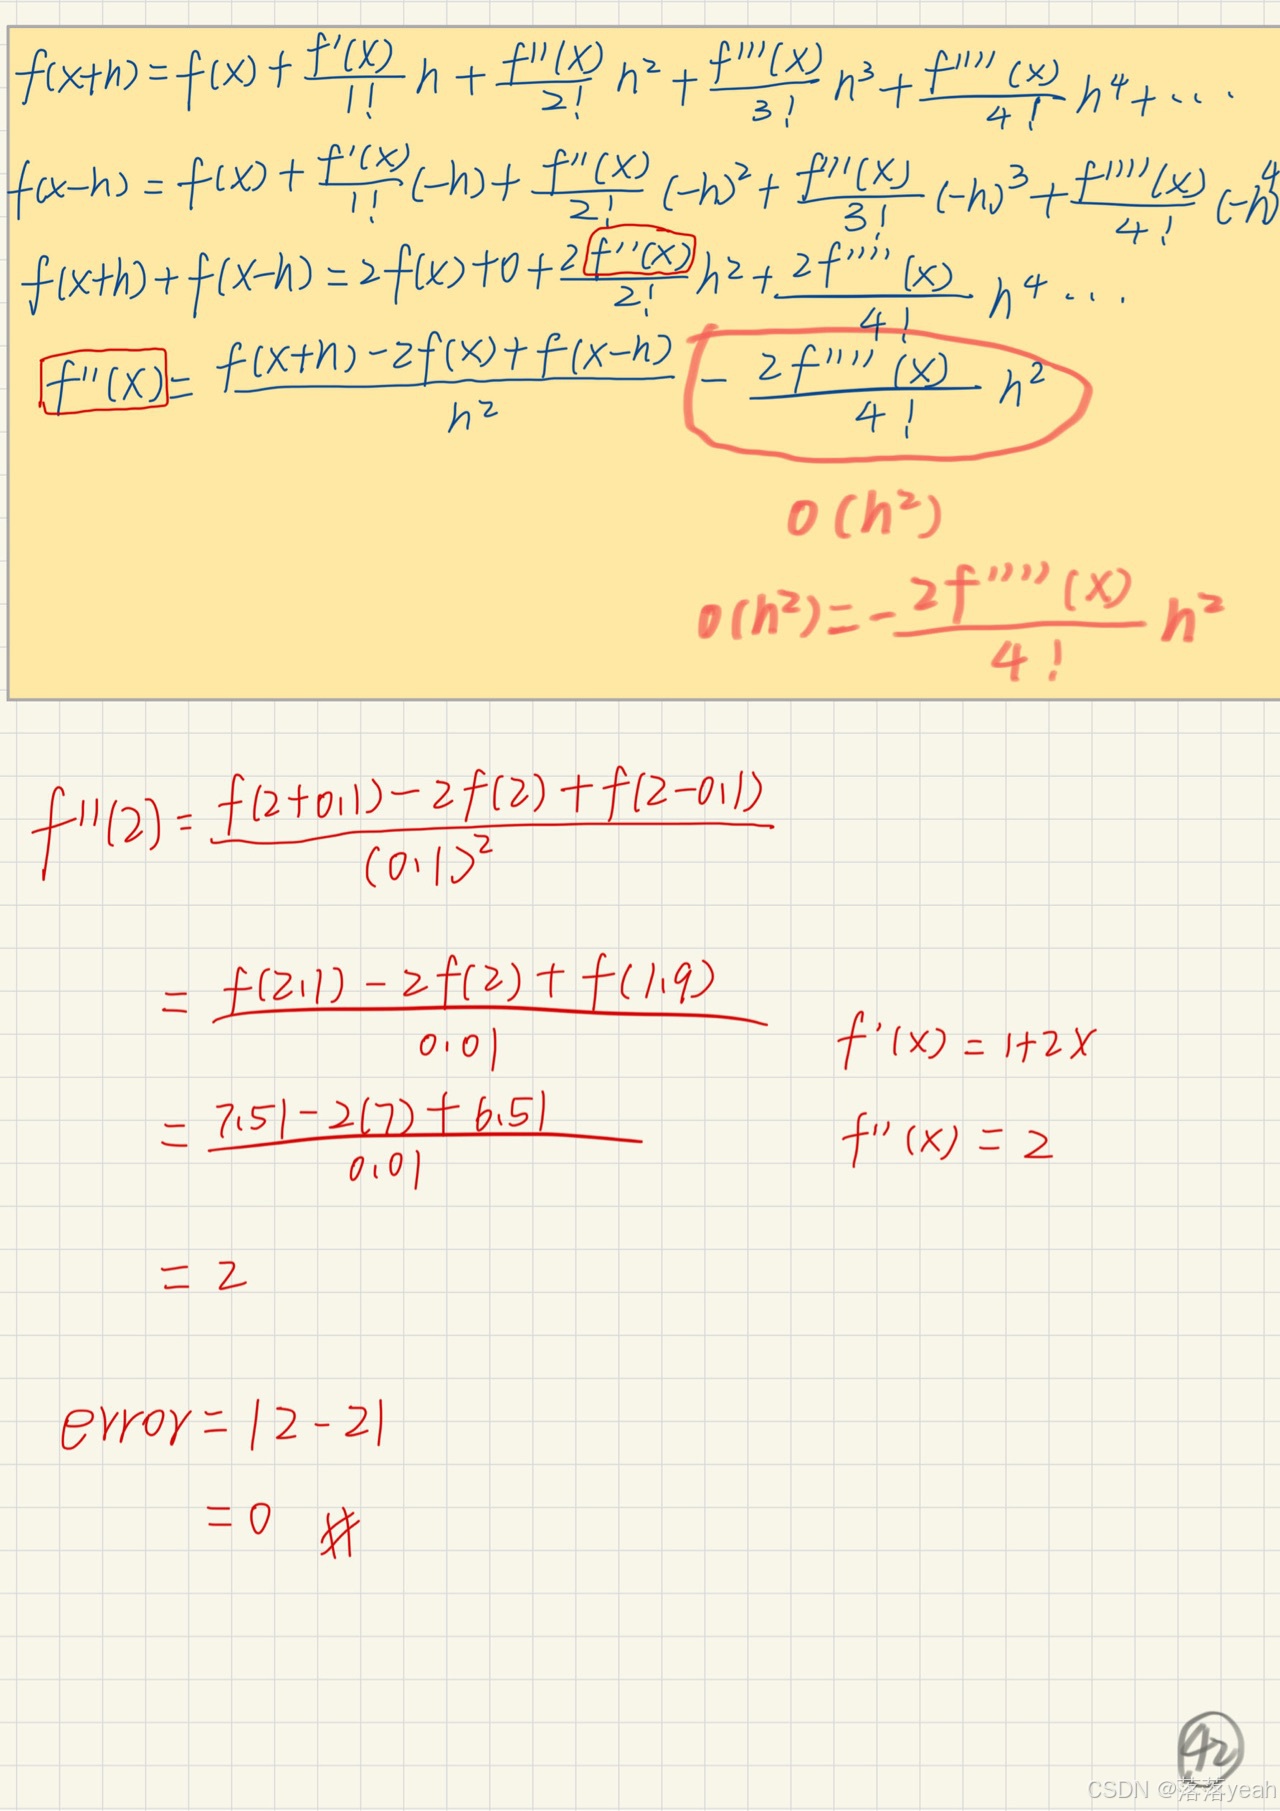 f(x+h) = f(x) + f'(x)/1! h + f''(x)/2! h² + f'''(x)/3! h³ + f''''(x)/4! h⁴ + ...
f(x-h) = f(x) + f'(x)/1! (-h) + f''(x)/2! (-h)² + f'''(x)/3! (-h)³ + f''''(x)/4! (-h)⁴
f(x+h) + f(x-h) = 2f(x) + 0 + 2f''(x)/2! h² + 2f''''(x)/4! h⁴ ...
f''(x) = (f(x+h) - 2f(x) + f(x-h))/h² - 2f''''(x)/4! h²
O(h²)
O(h²) = - 2f''''(x)/4! h²
f''(2) = (f(2+0.1) - 2f(2) + f(2-0.1))/(0.1)²
= (f(2.1) - 2f(2) + f(1.9))/0.01
f'(x) = 1+2x
= (7.51 - 2(7) + 6.51)/0.01
f''(x) = 2
= 2
error = |2-2|
= 0 #
42
CSDN @落落yeah